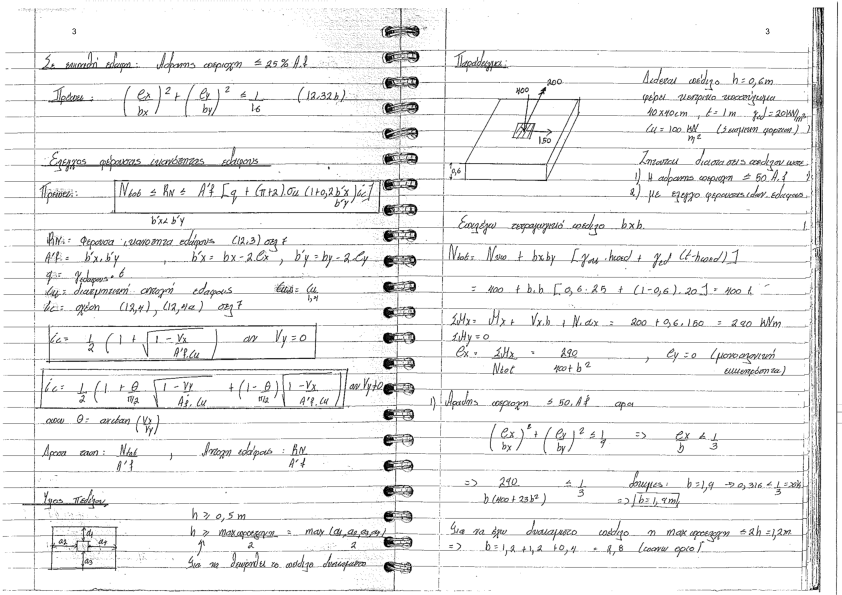 3
Σε επαφή εδαφ: Αδρανής περιοχή ≤ 25% A.f
Πρέπει: (ex/bx)² + (ey/by)² ≤ 1/16 (12,32b)
Ελεγχος φέρουσας ικανότητας εδάφους
Πρέπει: Ntot ≤ RN ≤ A'f [q + (π+2).cu (1+0,2b'x/b'y)ic]
b'x<b'y
RN = Φέρουσα ικανότητα εδάφους (12,3) σελ 7
A'f = b'x.b'y , b'x = bx - 2.ex , b'y = by - 2ey
q = γεδαφους . t
cu = διατμητική αντοχή εδάφους
ic = σχέση (12,4), (12,4a) σελ 7
ic = 1/2 (1 + √(1 - Vx/A'f.cu)) αν Vy = 0
ic = 1/2 (1 + θ/π/2 √(1 - Vy/A'f.cu) + (1 - θ/π/2) √(1 - Vx/A'f.cu)) αν Vy≠0
οπου θ = arctan (Vx/Vy)
Δρωσα ταση: Ntot/A'f , Αντοχή εδάφους: RN/A'f
Υψος πεδίλου
h ≥ 0,5 m
h ≥ max προεξεχον/2 = max (a1,a2,a3,a4)/2
Για να θεωρηθεί το πέδιλο δύσκαμπτο
a1
a2
a4
a3
3
Παράδειγμα:
400
200
150
0,6
Δίδεται πέδιλο h = 0,6m
φέρει κεντρικό υποστύλωμα
40x40cm , t = 1m
cu = 100 kN/m² (Σεισμική φόρτιση)
Ζητούνται διαστάσεις πεδίλου ωστε
1) Η αδρανης περιοχη ≤ 50 A.f
2) με ελεγχο φερουσας ικαν. εδαφους
Επιλέγω τετραγωνικό πέδιλο bxb.
+ bxby [γσκ.hπεδ + γεδ (t-hπεδ)]
= 400 + b.b [0,6.25 + (1-0,6).20] = 400
ΣMx = Mx + Vx.h + N.ax = 200 + 0,6.150 = 290 kNm
ΣMy = 0
ex = ΣMx/Ntot = 290/400+b² , ey = 0 (μονοαξονική εκκεντρότητα)
1) Αδρανής περιοχη ≤ 50.A.f αρα
(ex/bx)² + (ey/by)² ≤ 1/9 => ex/b ≤ 1/3
=> 290/b(400+23b²) ≤ 1/3 δοκιμες: b=1,9 → 0,316 ≤ 1/3
=> b=1,9m
Για να ειναι δυσκαμπτο πέδιλο η max προεξεχη ≤ 2h = 1,2m
=> b = 1,2 + 1,2 + 0,4 = 2,8 (ανω οριο)